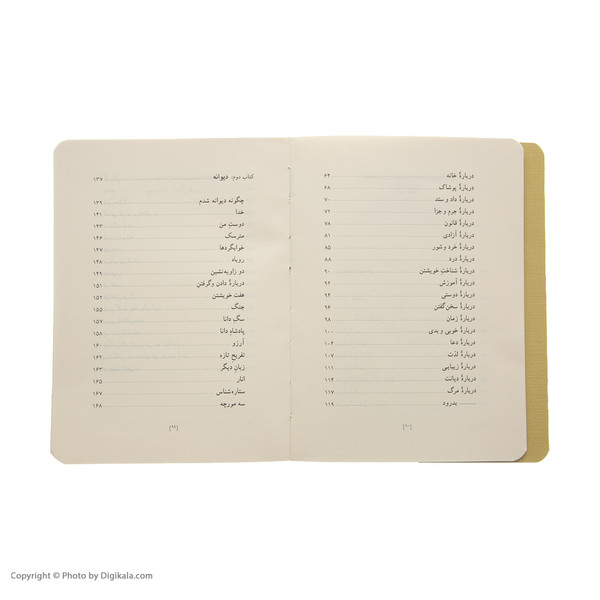 دربارهٔ خانه ۶۴
دربارهٔ پوشاک ۶۸
دربارهٔ داد و ستد ۷۰
دربارهٔ جرم و جزا ۷۲
دربارهٔ قانون ۷۸
دربارهٔ آزادی ۸۱
دربارهٔ خرد و شور ۸۵
دربارهٔ درد ۸۸
دربارهٔ شناختِ خویشتن ۹۰
دربارهٔ آموزش ۹۲
دربارهٔ دوستی ۹۴
دربارهٔ سخن‌گفتن ۹۶
دربارهٔ زمان ۹۸
دربارهٔ خوبی و بدی ۱۰۰
دربارهٔ دعا ۱۰۴
دربارهٔ لذت ۱۰۷
دربارهٔ زیبایی ۱۱۱
دربارهٔ دیانت ۱۱۴
دربارهٔ مرگ ۱۱۷
بدرود ۱۱۹
[۱۰]
کتاب دوم: دیوانه ۱۳۷
چگونه دیوانه شدم ۱۳۹
خدا ۱۴۱
دوستِ من ۱۴۳
مترسک ۱۴۶
خوابگردها ۱۴۷
روباه ۱۴۸
دو زاویه‌نشین ۱۴۹
دربارهٔ دادن و گرفتن ۱۵۱
هفت خویشتن ۱۵۲
جنگ ۱۵۵
سگِ دانا ۱۵۷
پادشاهِ دانا ۱۵۸
آرزو ۱۶۰
تفریحِ تازه ۱۶۲
زبانِ دیگر ۱۶۳
انار ۱۶۵
ستاره‌شناس ۱۶۷
سه مورچه ۱۶۸
[۱۱]
Copyright © Photo by Digikala.com